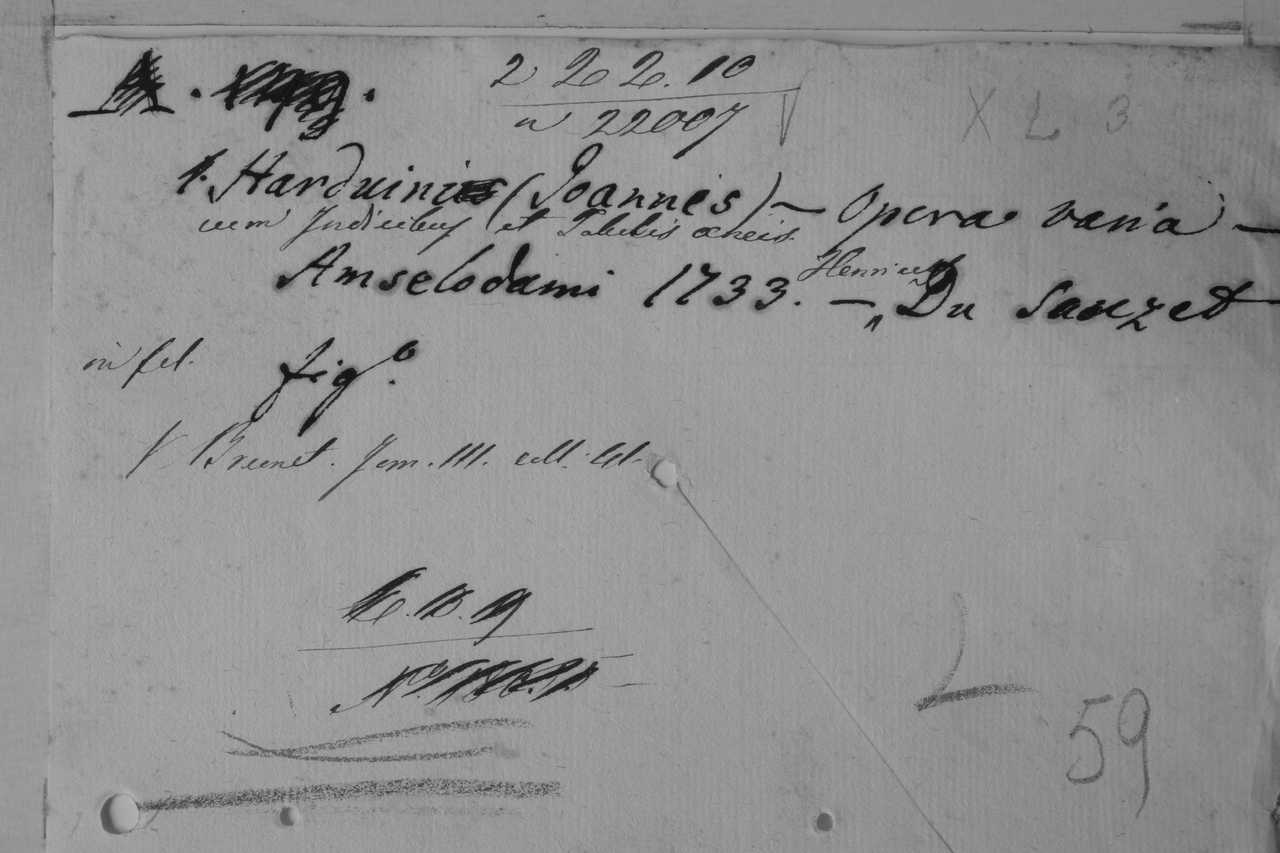 2 2 2. 10
n 22007
X L 3
1. Harduini (Joannis) — Opera varia —
cum Indicibus et Tabulis æneis.
Amselodami 1733. — Henricus Du Sauzet —
in fol. fig.º
V Brunet. Tom. III. coll. 41.
59